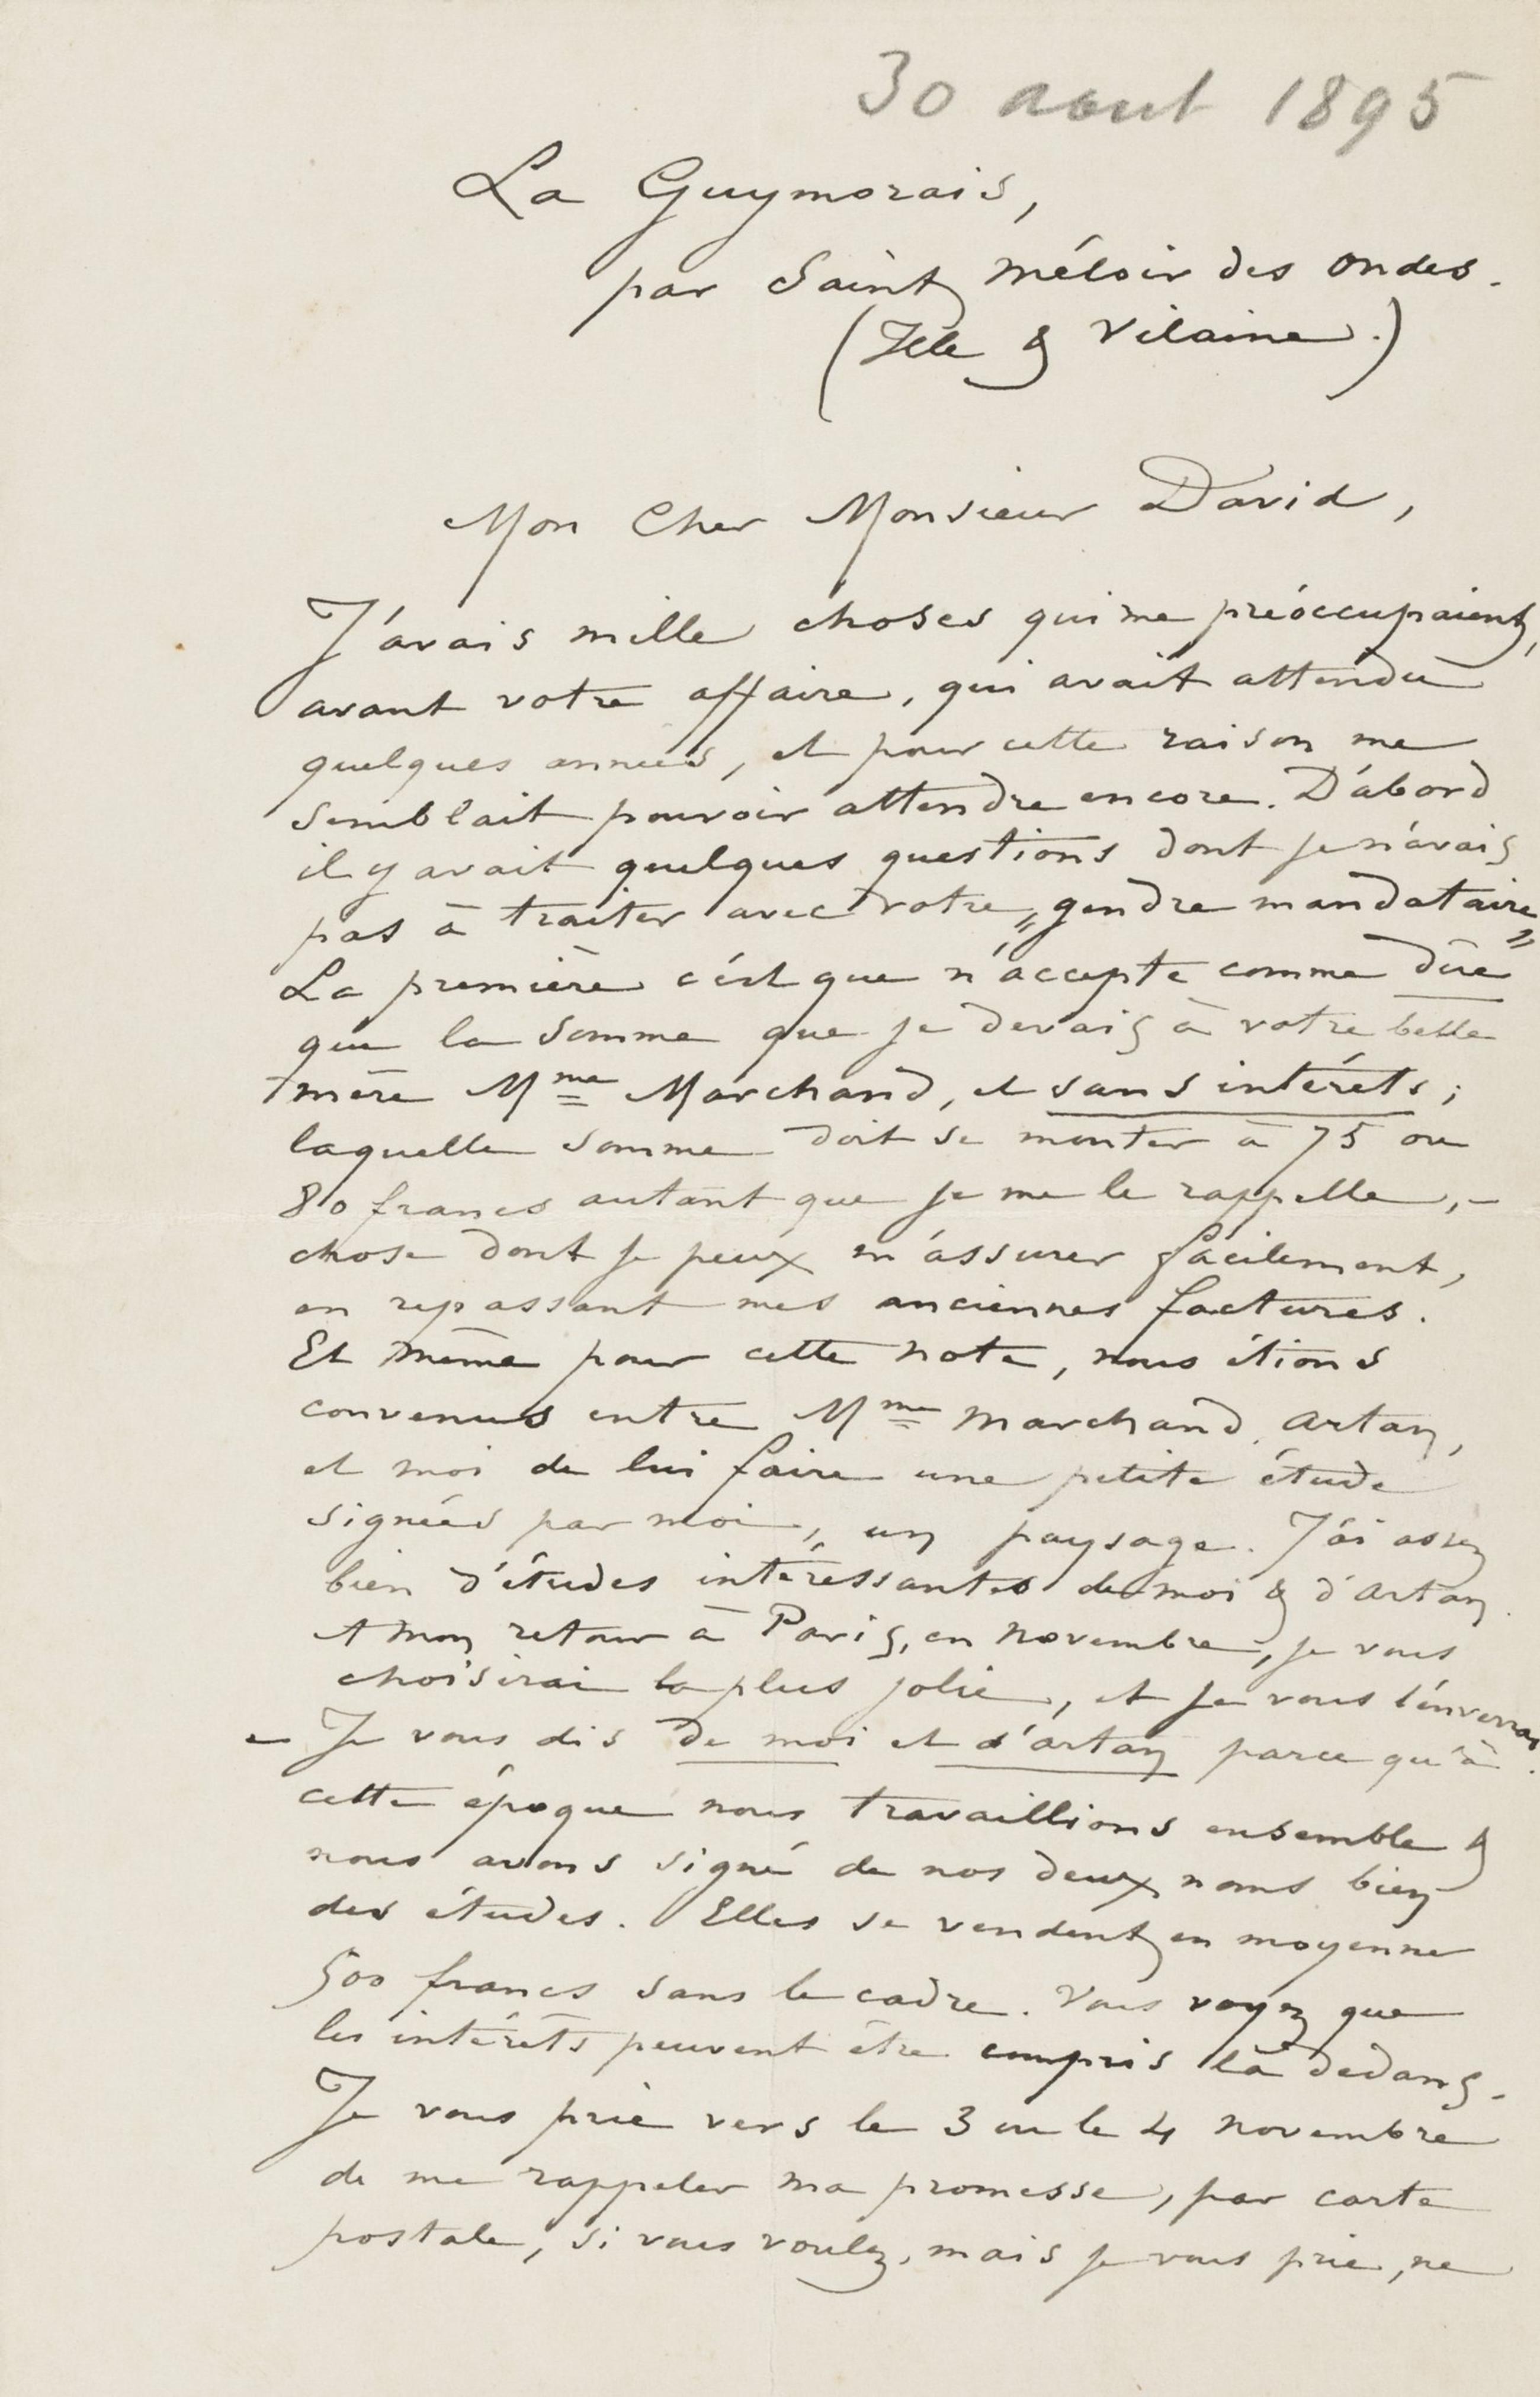 30 aout 1895
La Guymorais,
par Saint Méloir des Ondes.
(Ille & Vilaine.)
Mon Cher Monsieur David,
J'avais mille choses qui me préoccupaient,
avant votre affaire, qui avait attendu
quelques années, et pour cette raison me
semblait pouvoir attendre encore. D'abord
il y avait quelques questions dont je n'avais
pas à traiter avec votre „gendre mandataire"
La première c'est que n'accepte comme dûe
que la somme que je devais à votre belle
mère Mme Marchand, et sans intérêts;
laquelle somme doit se monter à 75 ou
80 francs autant que je me le rappelle, –
chose dont je peux m'assurer facilement,
en repassant mes anciennes factures.
Et même pour cette note, nous étions
convenus entre Mme Marchand, Artan,
et moi de lui faire une petite étude
signées par moi, un paysage. J'ai assez
bien d'études intéressantes de moi & d'Artan.
A mon retour à Paris, en Novembre, je vous
choisirai la plus jolie, et je vous l'enverrai.
– Je vous dis de moi et d'Artan parce qu'à
cette époque nous travaillions ensemble &
nous avons signé de nos deux noms bien
des études. Elles se vendent en moyenne
500 francs sans le cadre. Vous voyez que
les intérêts peuvent être compris là dedans.
Je vous prie vers le 3 ou le 4 Novembre
de me rappeler ma promesse, par carte
postale, si vous voulez, mais je vous prie, ne